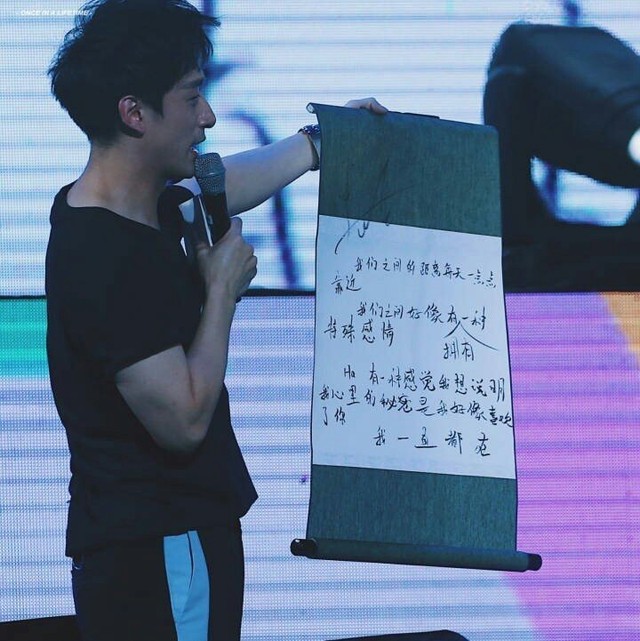 ONCE IN A LIFE
我们之间的距离每天一点点
靠近
我们之间好像有一种
特殊感情
拥有
Ha 有一种感觉我想说明
我心里的秘密是我好像喜欢
了你
我一直都在